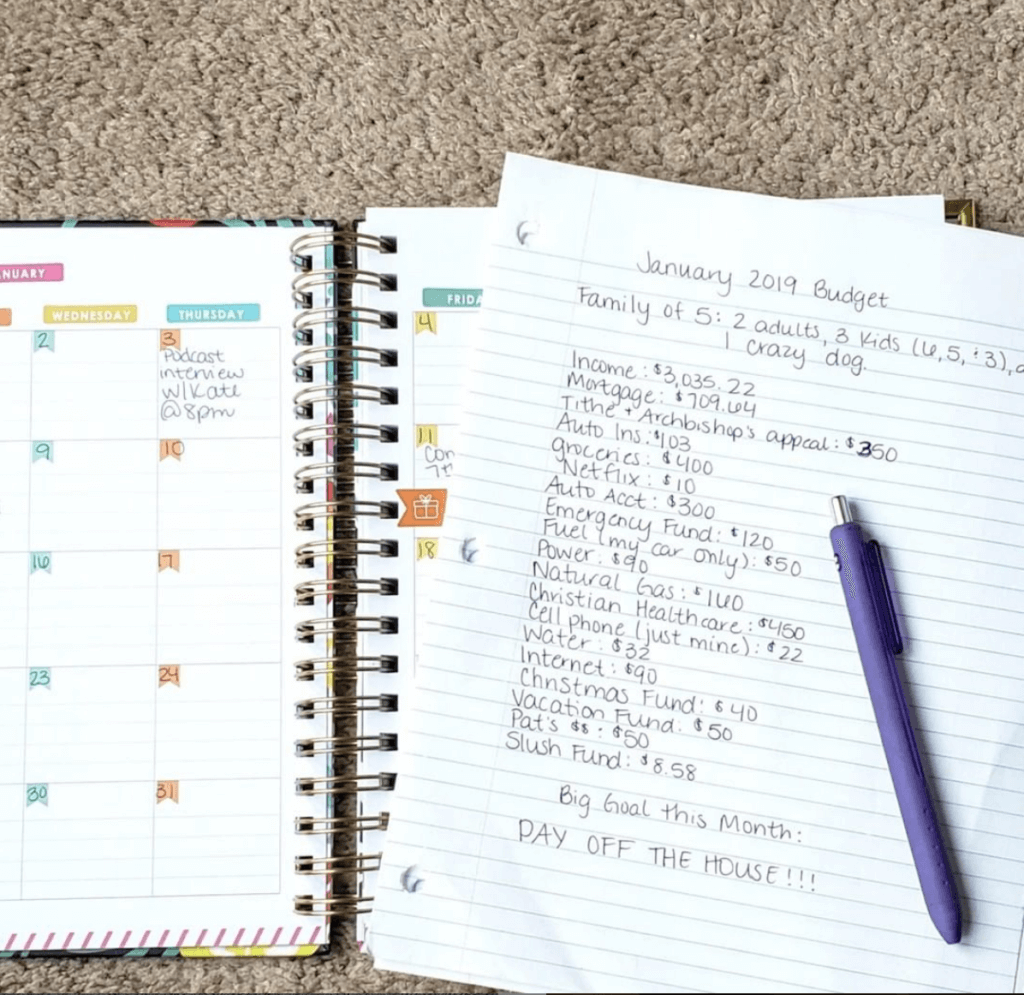 NUARY
WEDNESDAY
THURSDAY
2
3
Podcast
interview
w/Kate
@8pm
9
10
16
17
23
24
30
31
FRIDA
4
11
Con
18
January 2019 Budget
Family of 5: 2 adults, 3 kids (6, 5, & 3),
1 crazy dog.
Income: $3,035.22
Mortgage: $709.64
Tithe + Archbishop's appeal: $350
Auto Ins: $103
groceries: $400
Netflix: $10
Auto Acct: $300
Emergency Fund: $120
Fuel (my car only): $50
Power: $90
Natural Gas: $160
Christian Healthcare: $450
Cell phone (just mine): $22
Water: $32
Internet: $90
Christmas Fund: $40
Vacation Fund: $50
Pat's $$: $50
Slush Fund: $8.58
Big Goal this Month:
PAY OFF THE HOUSE!!!